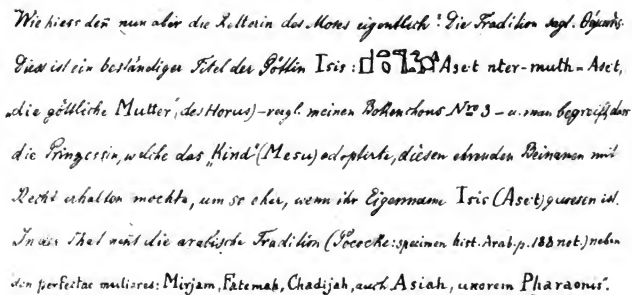 Wie hiess deñ nun aber die Retterin des Moses eigentlich? Die Tradition sagt: Θέρμουθις.
Dies ist ein beständiger Titel der Göttin Isis: Aset nter-muth = Aset,
„die göttliche Mutter“, des Horus) – vergl. meinen Bokenchons Nro 3 – u. man begreift, dass
die Prinzessin, welche das „Kind“ (Mesu) adoptirte, diesen ehrenden Beinamen mit
Recht erhalten mochte, um so eher, wenn ihr Eigenname Isis (Aset) gewesen ist.
In der That neñt die arabische Tradition (Pococke: specimen hist. Arab. p. 188 not.) neben
den perfectae mulieres: Mirjam, Fatemah, Chadijah, auch Asiah, uxorem Pharaonis“.